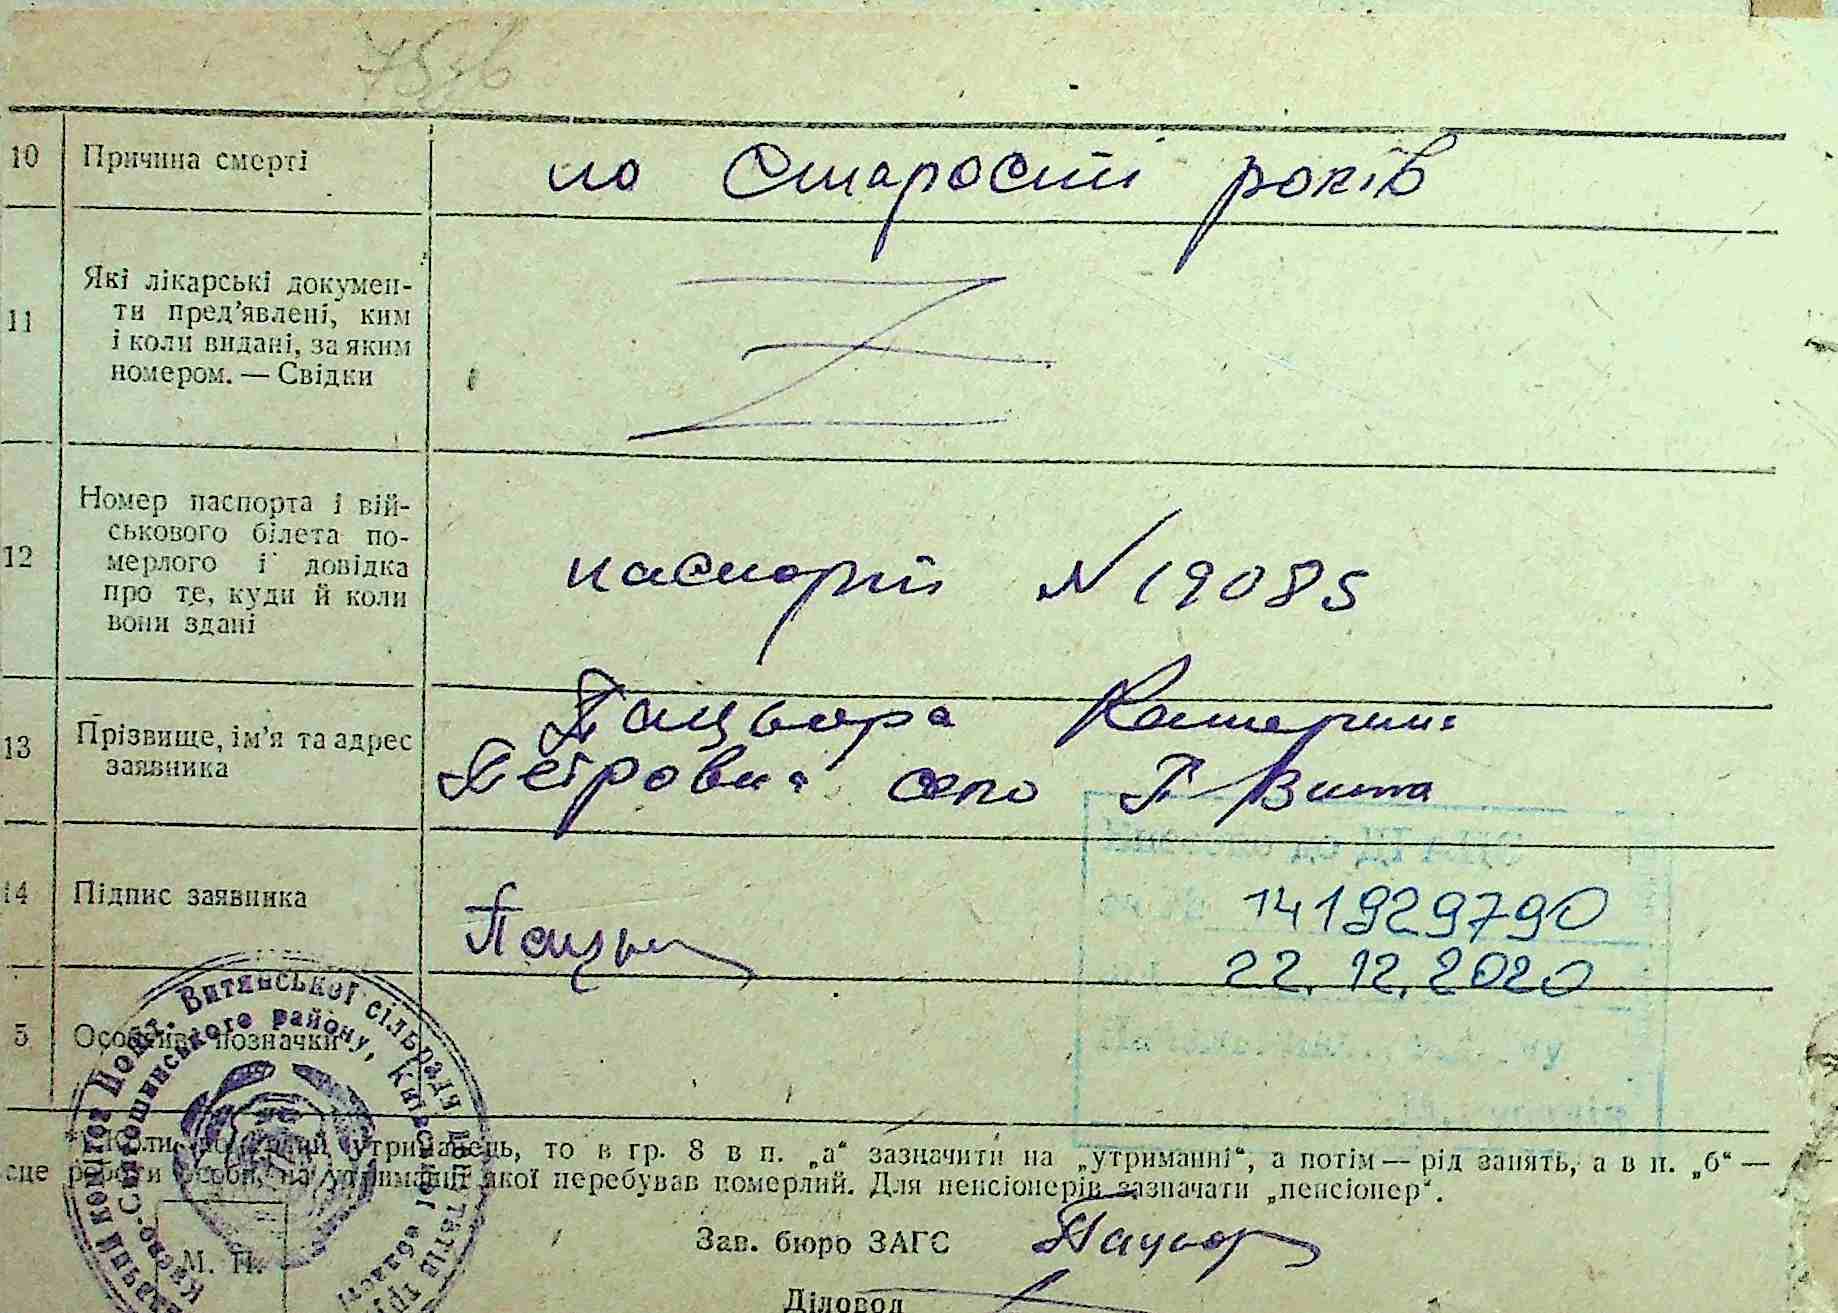 10 Причина смерті по старості років
11 Які лікарські докумен-
ти пред’явлені, ким
і коли видані, за яким
номером. — Свідки
Номер паспорта і вій-
ськового білета по-
12 мерлого і довідка паспорт N 19085
про те, куди й коли
вони здані
Пацьора Катерина
13 Прізвище, ім’я та адрес
заявника Петровна село П Вита
14 Підпис заявника
141929790
22.12.2020
5 Особливі позначки
утриманець, то в гр. 8 в п. „а“ зазначити на „утриманні“, а потім — рід занять, а в п. „б“ —
сце роботи особи, на утриманні якої перебував померлий. Для пенсіонерів зазначати „пенсіонер“.
Зав. бюро ЗАГС
М. П.
Діловод
Витянської сільради
Києво-Святошинського району, Київської області